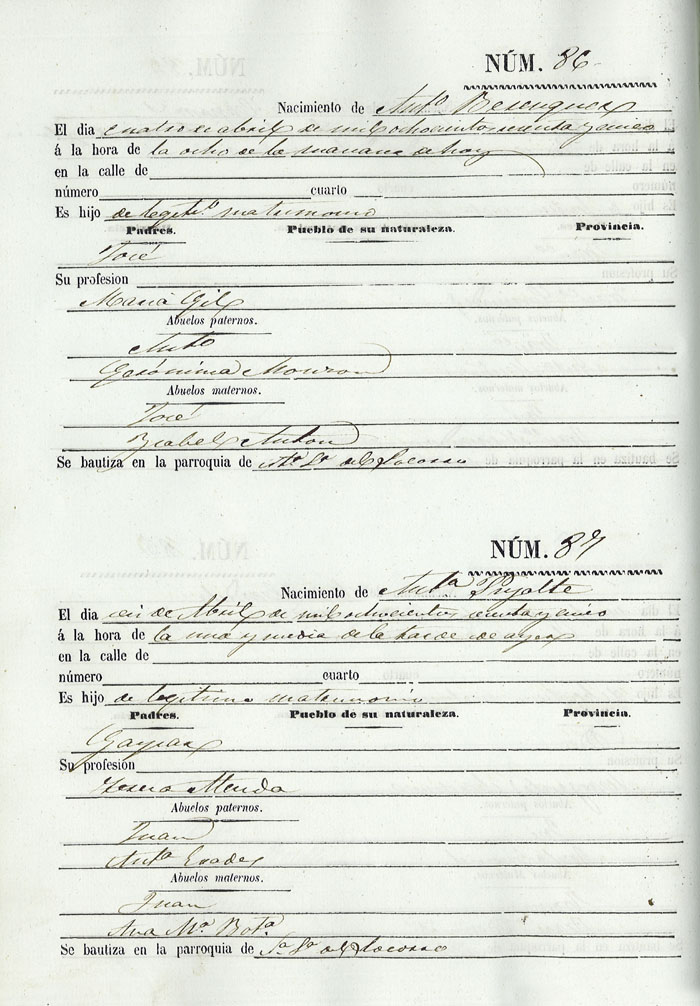 NÚM. 86
Nacimiento de Antº Berenguer
El dia cuatro de abril de mil ochocientos y cinco
á la hora de la ocho de la mañana de hoy
en la calle de
número cuarto
Es hijo de legitº matrimonio
Padres. Pueblo de su naturaleza. Provincia.
José
Su profesion
Maria Gil
Abuelos paternos.
Antº
Gerónima Monzon
Abuelos maternos.
José
Ysabel Anton
Se bautiza en la parroquia de Sª del Socorro
NÚM. 87
Nacimiento de Antª
El dia seis de Abril de mil ochocientos y cinco
á la hora de la una y media de la tarde de ayer
en la calle de
número cuarto
Es hijo de legitimo matrimonio
Padres. Pueblo de su naturaleza. Provincia.
Gaspar
Su profesión
Abuelos paternos.
Juan
Antª
Abuelos maternos.
Juan
Ana Mª Botª
Se bautiza en la parroquia de Sª del Socorro